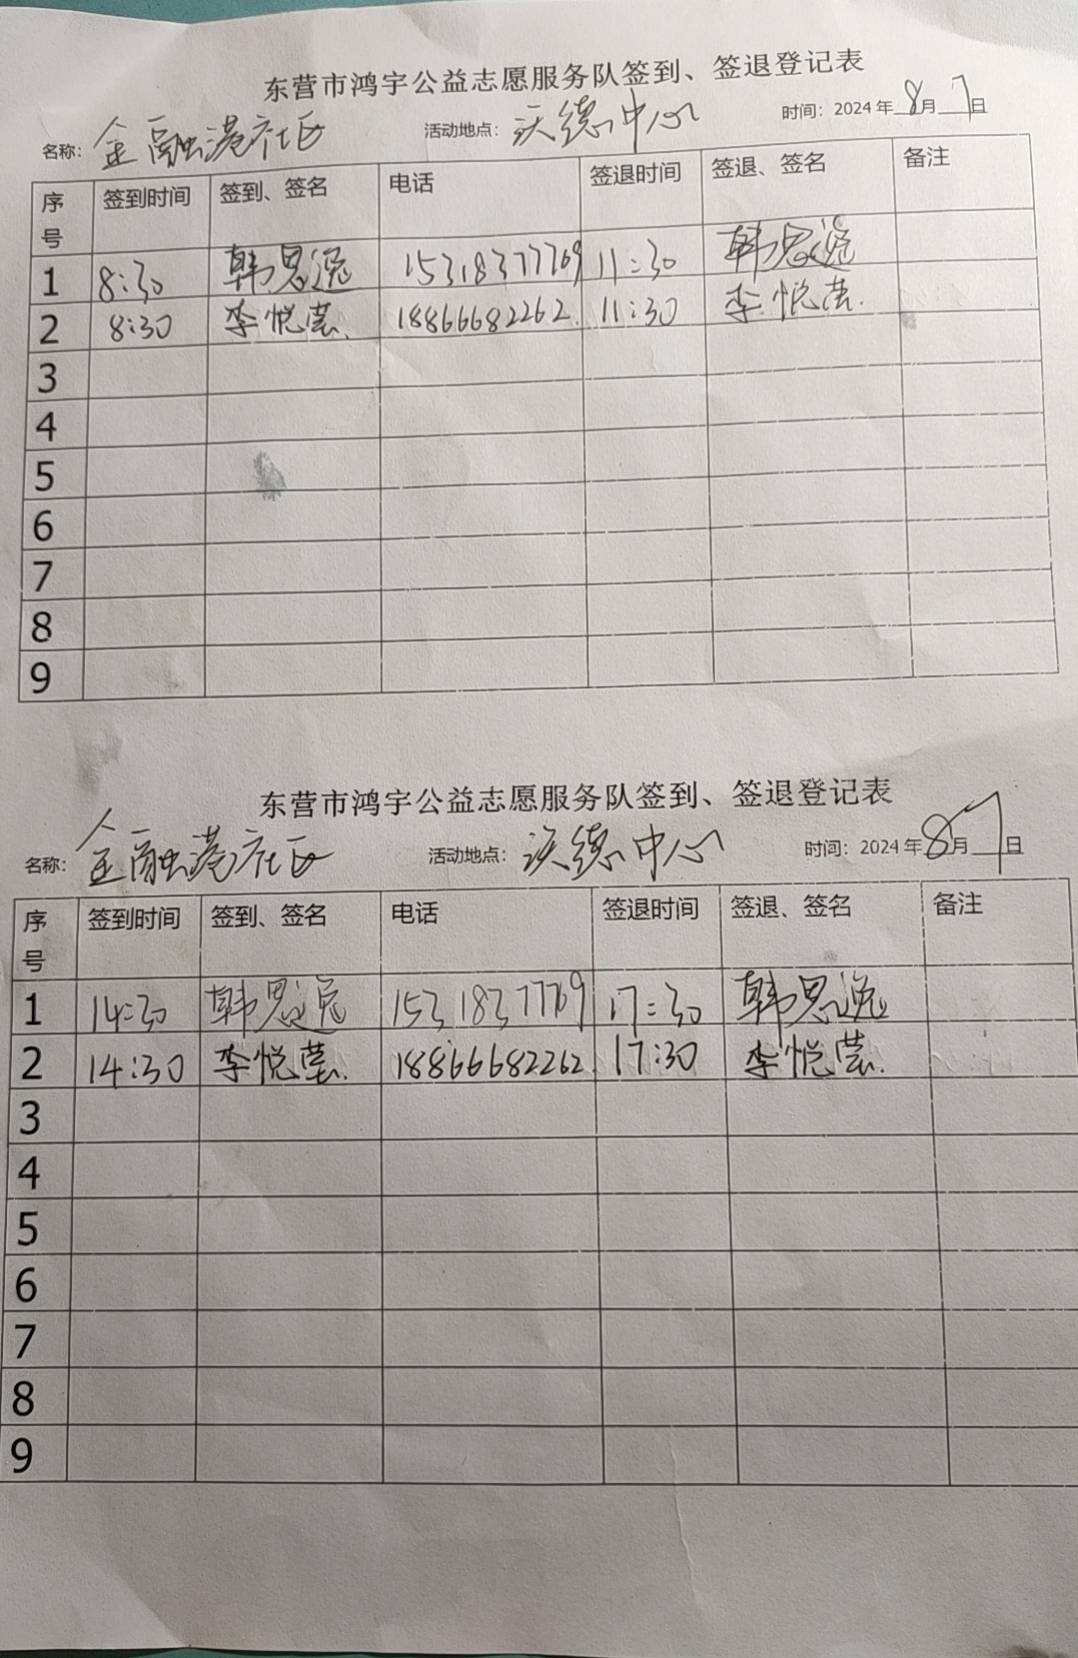 东营市鸿宇公益志愿服务队签到、签退登记表
名称：金融港社区 活动地点：沃德中心 时间：2024年8月7日
序号 签到时间 签到、签名 电话 签退时间 签退、签名 备注
1 8:30 韩思逸 15318377769 11:30 韩思逸
2 8:30 李悦莹. 18866682262. 11:30 李悦莹.
3
4
5
6
7
8
9
东营市鸿宇公益志愿服务队签到、签退登记表
名称：金融港社区 活动地点：沃德中心 时间：2024年8月7日
序号 签到时间 签到、签名 电话 签退时间 签退、签名 备注
1 14:30 韩思逸 15318377769 17:30 韩思逸
2 14:30 李悦莹. 18866682262. 17:30 李悦莹.
3
4
5
6
7
8
9